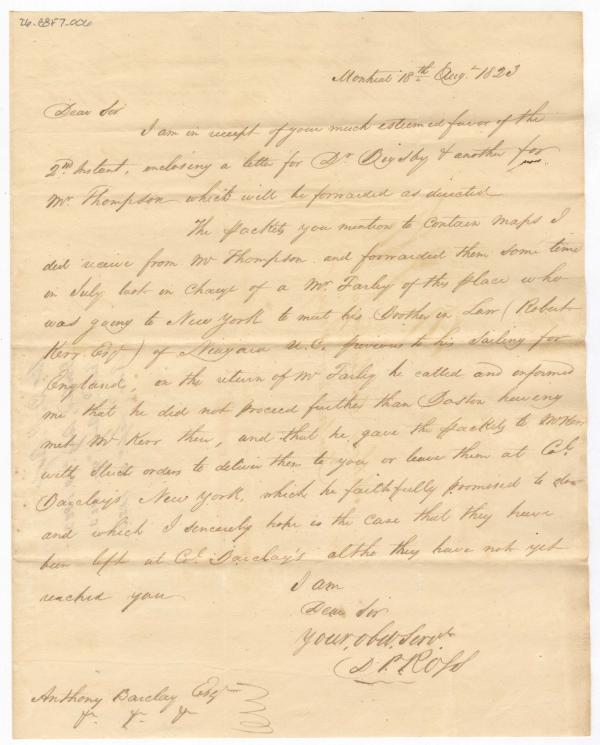 26.88F7.006
Montreal 18th Augt 1823
Dear Sir
I am in receipt of your much esteemed favor of the
2nd Instant, enclosing a letter for Dr Bigsby & another for
Mr Thompson which will be forwarded as directed
The packets you mention to contain maps I
did receive from Mr Thompson and forwarded them some time
in July last in Charge of a Mr Farley of this place who
was going to New York to meet his Brother in Law (Robert
Kerr Esqr) of Niagara U.C. previous to his Sailing for
England, on the return of Mr Farley he called and informed
me that he did not proceed further than Boston having
met Mr Kerr there, and that he gave the packets to Mr Kerr
with strict orders to deliver them to you or leave them at Col.
Barclay's New York, which he faithfully promised to do
and which I sincerely hope is the case that they have
been left at Col. Barclay's altho they have not yet
reached you
I am
Dear Sir
Your, obdt, Servt
D P. Ross
Anthony Barclay Esqr
&. &. &